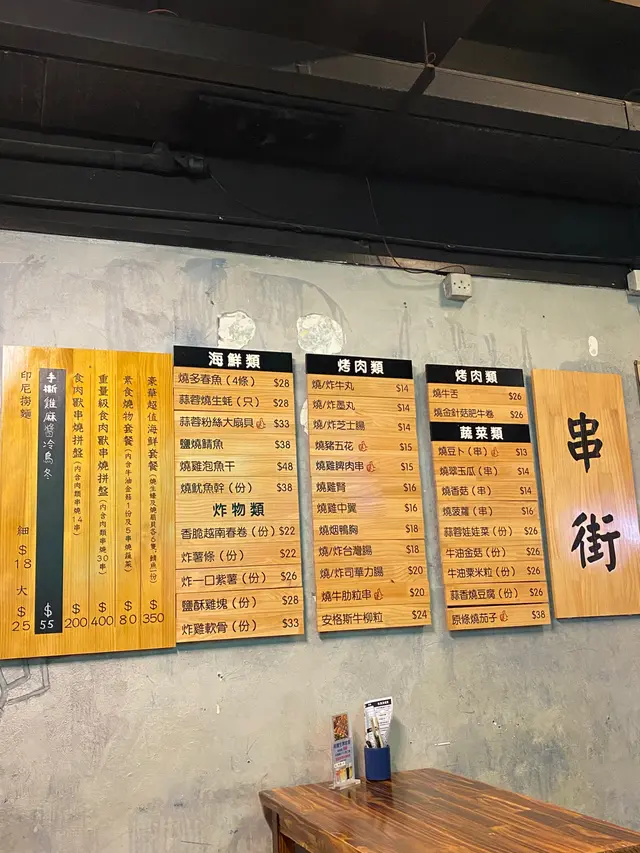 印尼撈麵 細$18 大$25
手撕雞麻醬冷烏冬 $55
食肉獸串燒拼盤(內含肉類串燒14串) $200
重量級食肉獸串燒拼盤(內含肉類串燒30串) $400
素食燒物套餐(內含牛油金菇1份及5串蔬菜) $80
豪華超值海鮮套餐 $350
海鮮類
燒多春魚(4條) $28
蒜蓉燒生蚝(只) $28
蒜蓉粉絲大扇貝 $33
鹽燒鯖魚 $38
燒雞泡魚干 $48
燒魷魚幹(份) $38
炸物類
香脆越南春卷(份) $22
炸薯條(份) $22
炸一口紫薯(份) $26
鹽酥雞塊(份) $28
炸雞軟骨(份) $33
烤肉類
燒/炸牛丸 $14
燒/炸墨丸 $14
燒/炸芝士腸 $14
燒豬五花 $15
燒雞脾肉串 $15
燒雞腎 $16
燒雞中翼 $16
燒烟鴨胸 $18
燒/炸台灣腸 $18
燒/炸司華力腸 $20
燒牛肋粒串 $20
安格斯牛柳粒 $24
烤肉類
燒牛舌 $26
燒金針菇肥牛卷 $26
蔬菜類
燒豆卜(串) $13
燒翠玉瓜(串) $14
燒香菇(串) $14
燒菠蘿(串) $16
蒜蓉娃娃菜(份) $26
牛油金菇(份) $26
牛油粟米粒(份) $26
蒜香燒豆腐(份) $26
原條燒茄子 $38
串街